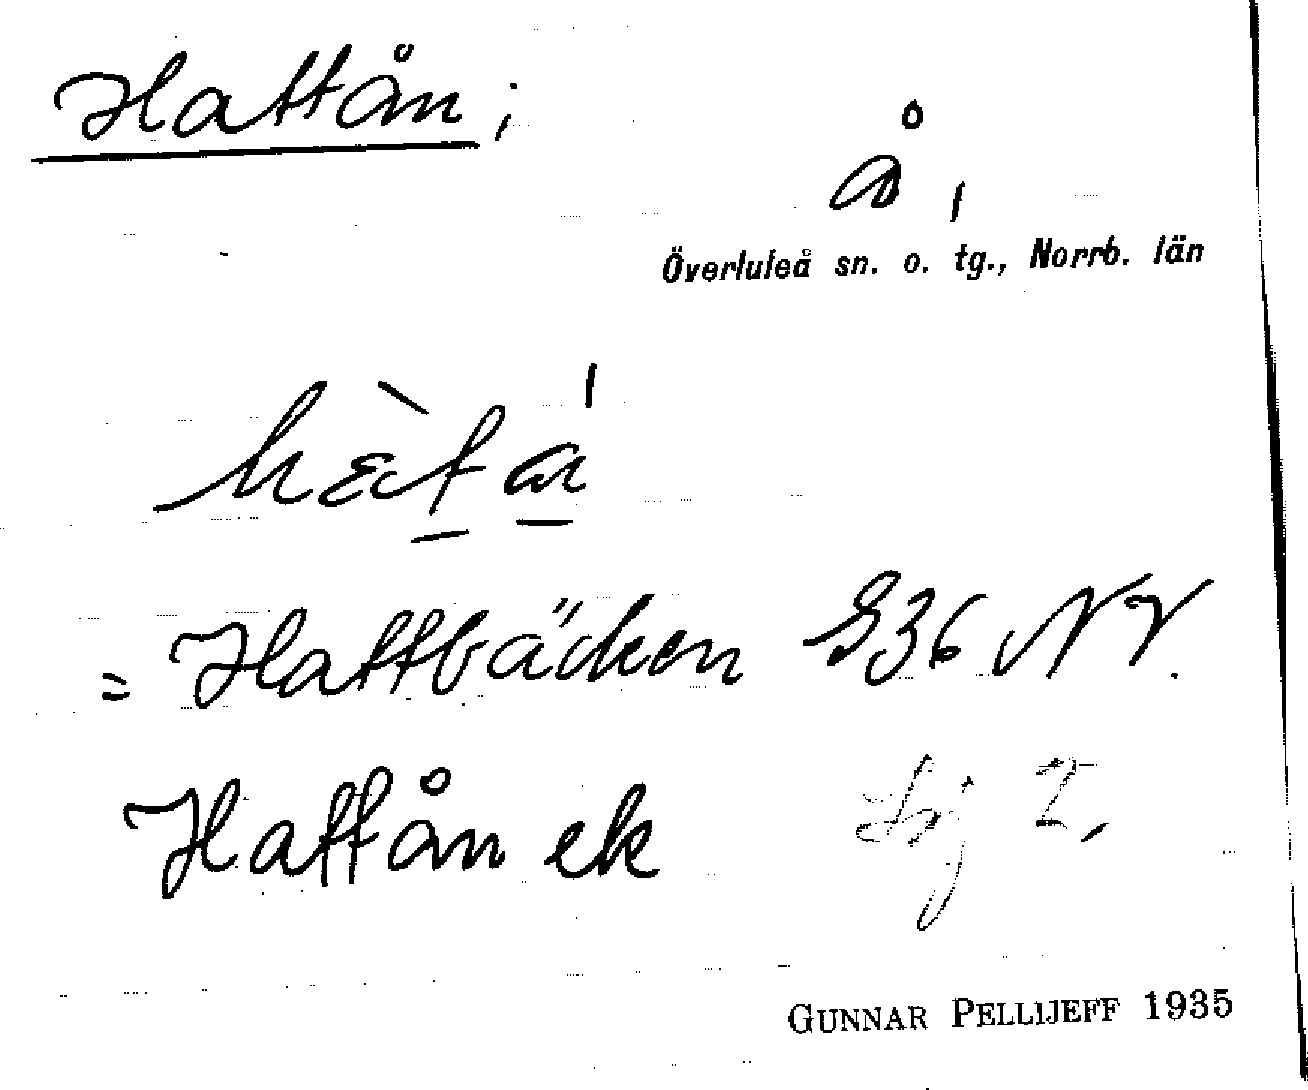 Hattån;
å,
Överluleå sn. o. tg., Norrb. län
= Hattbäcken G36 NV.
Hattån ek
GUNNAR PELLIJEFF 1935